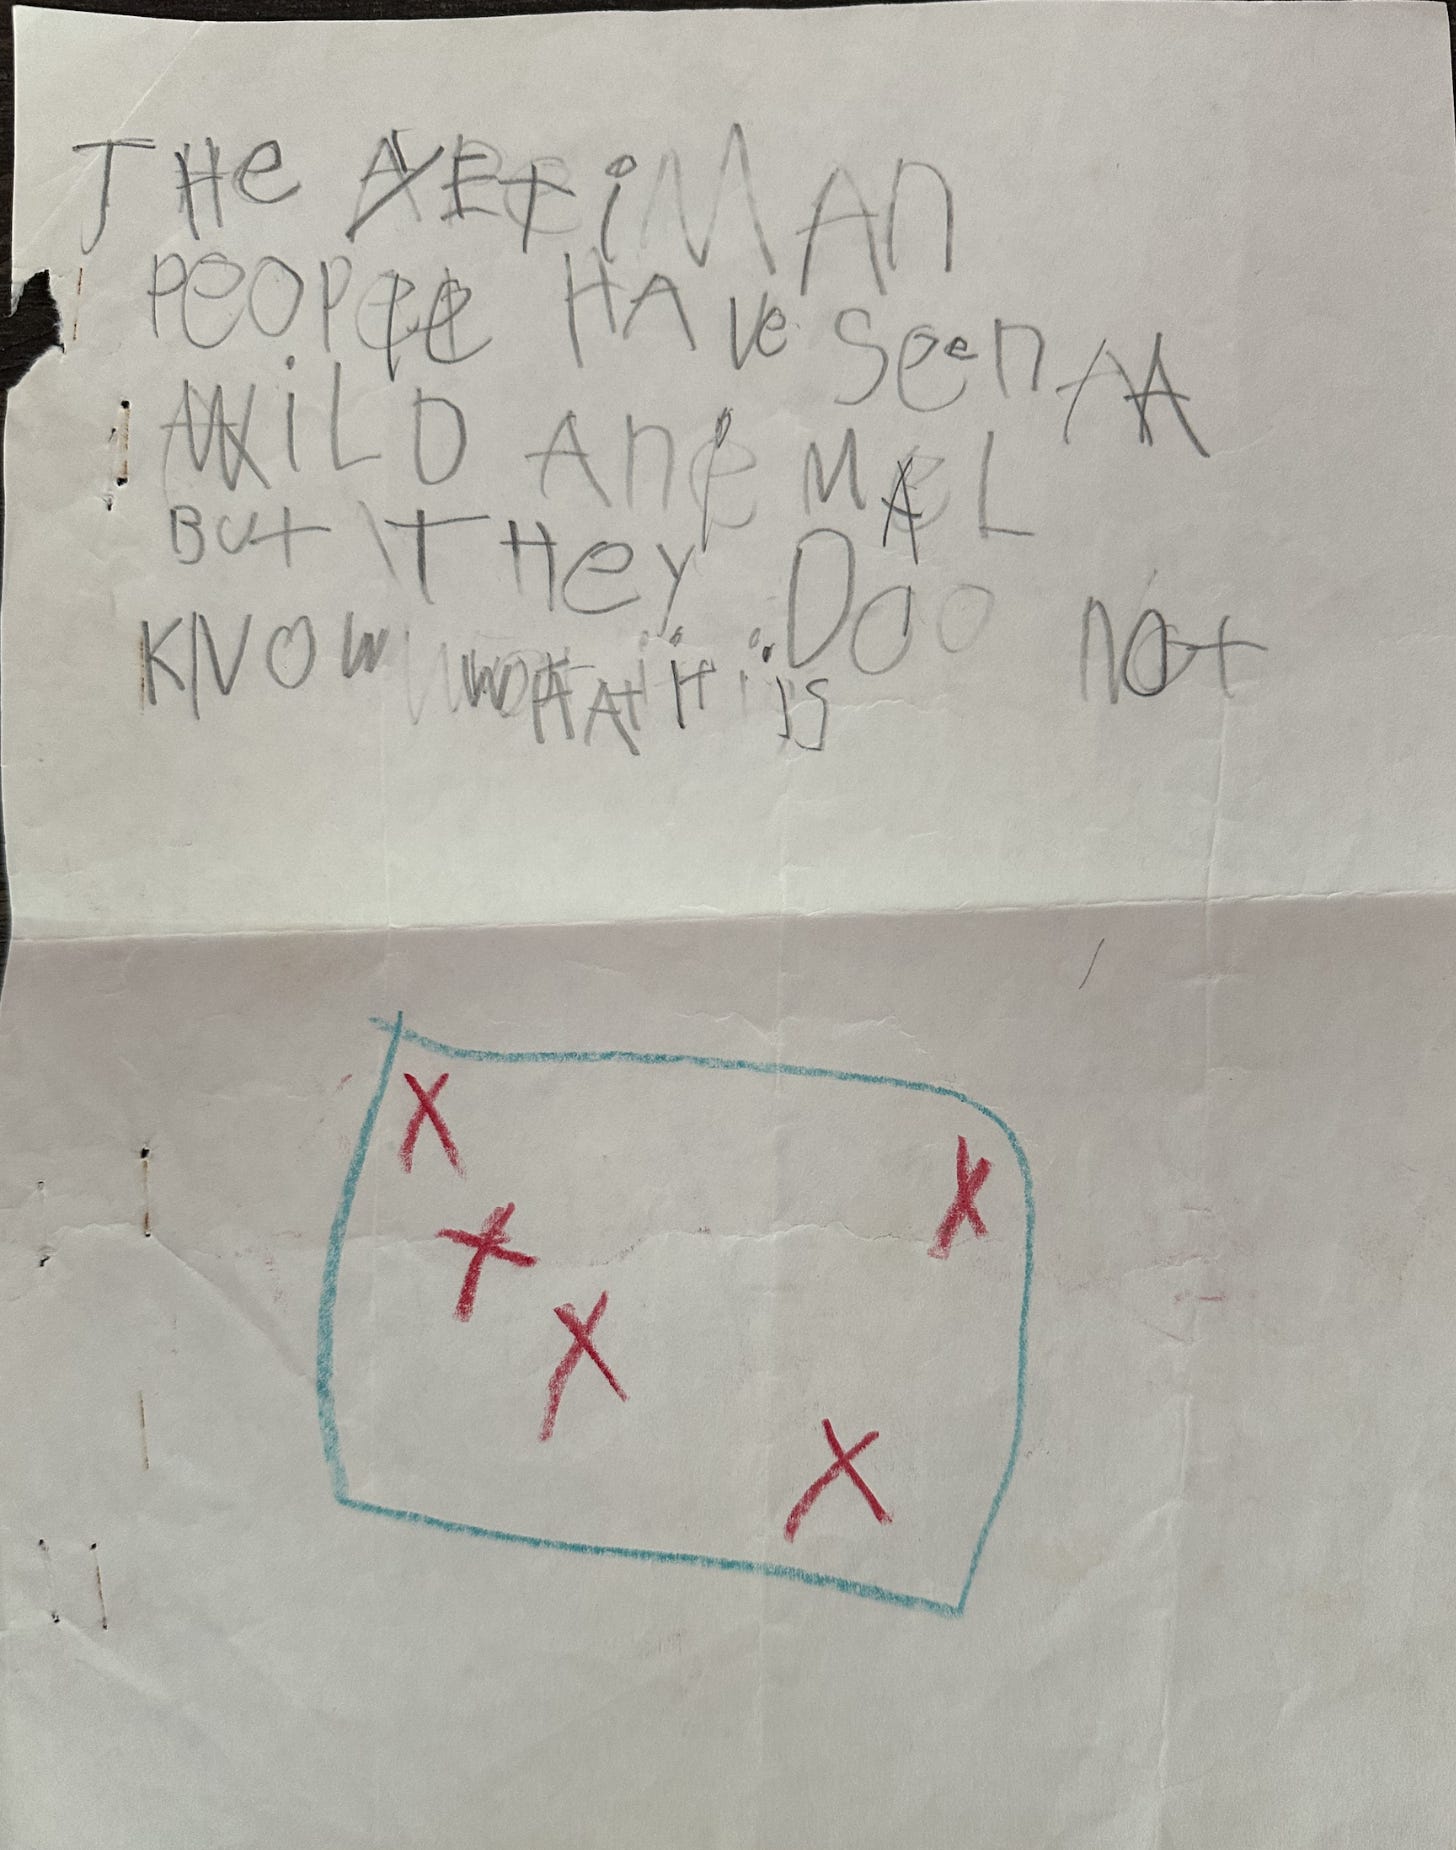 THe YETiMAn
PeOPLe HAve Seen A
WiLD AniMAL
BUt THey Do not
KNOW WHAt it is